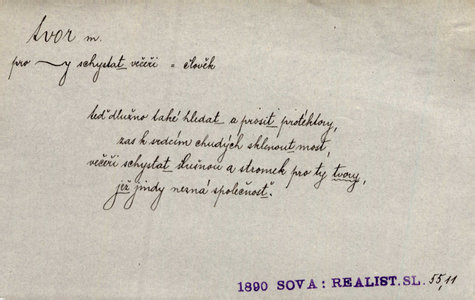 tvor m.
pro ~y schystat večeři = člověk
teď dlužno také hledat a prosit protéktory,
zas k srdcím chudých sklenout most,
večeři schystat slušnou a stromek pro ty tvory,
již jindy nezná společnosť".
1890 SOVA: REALIST. SL. 55,11